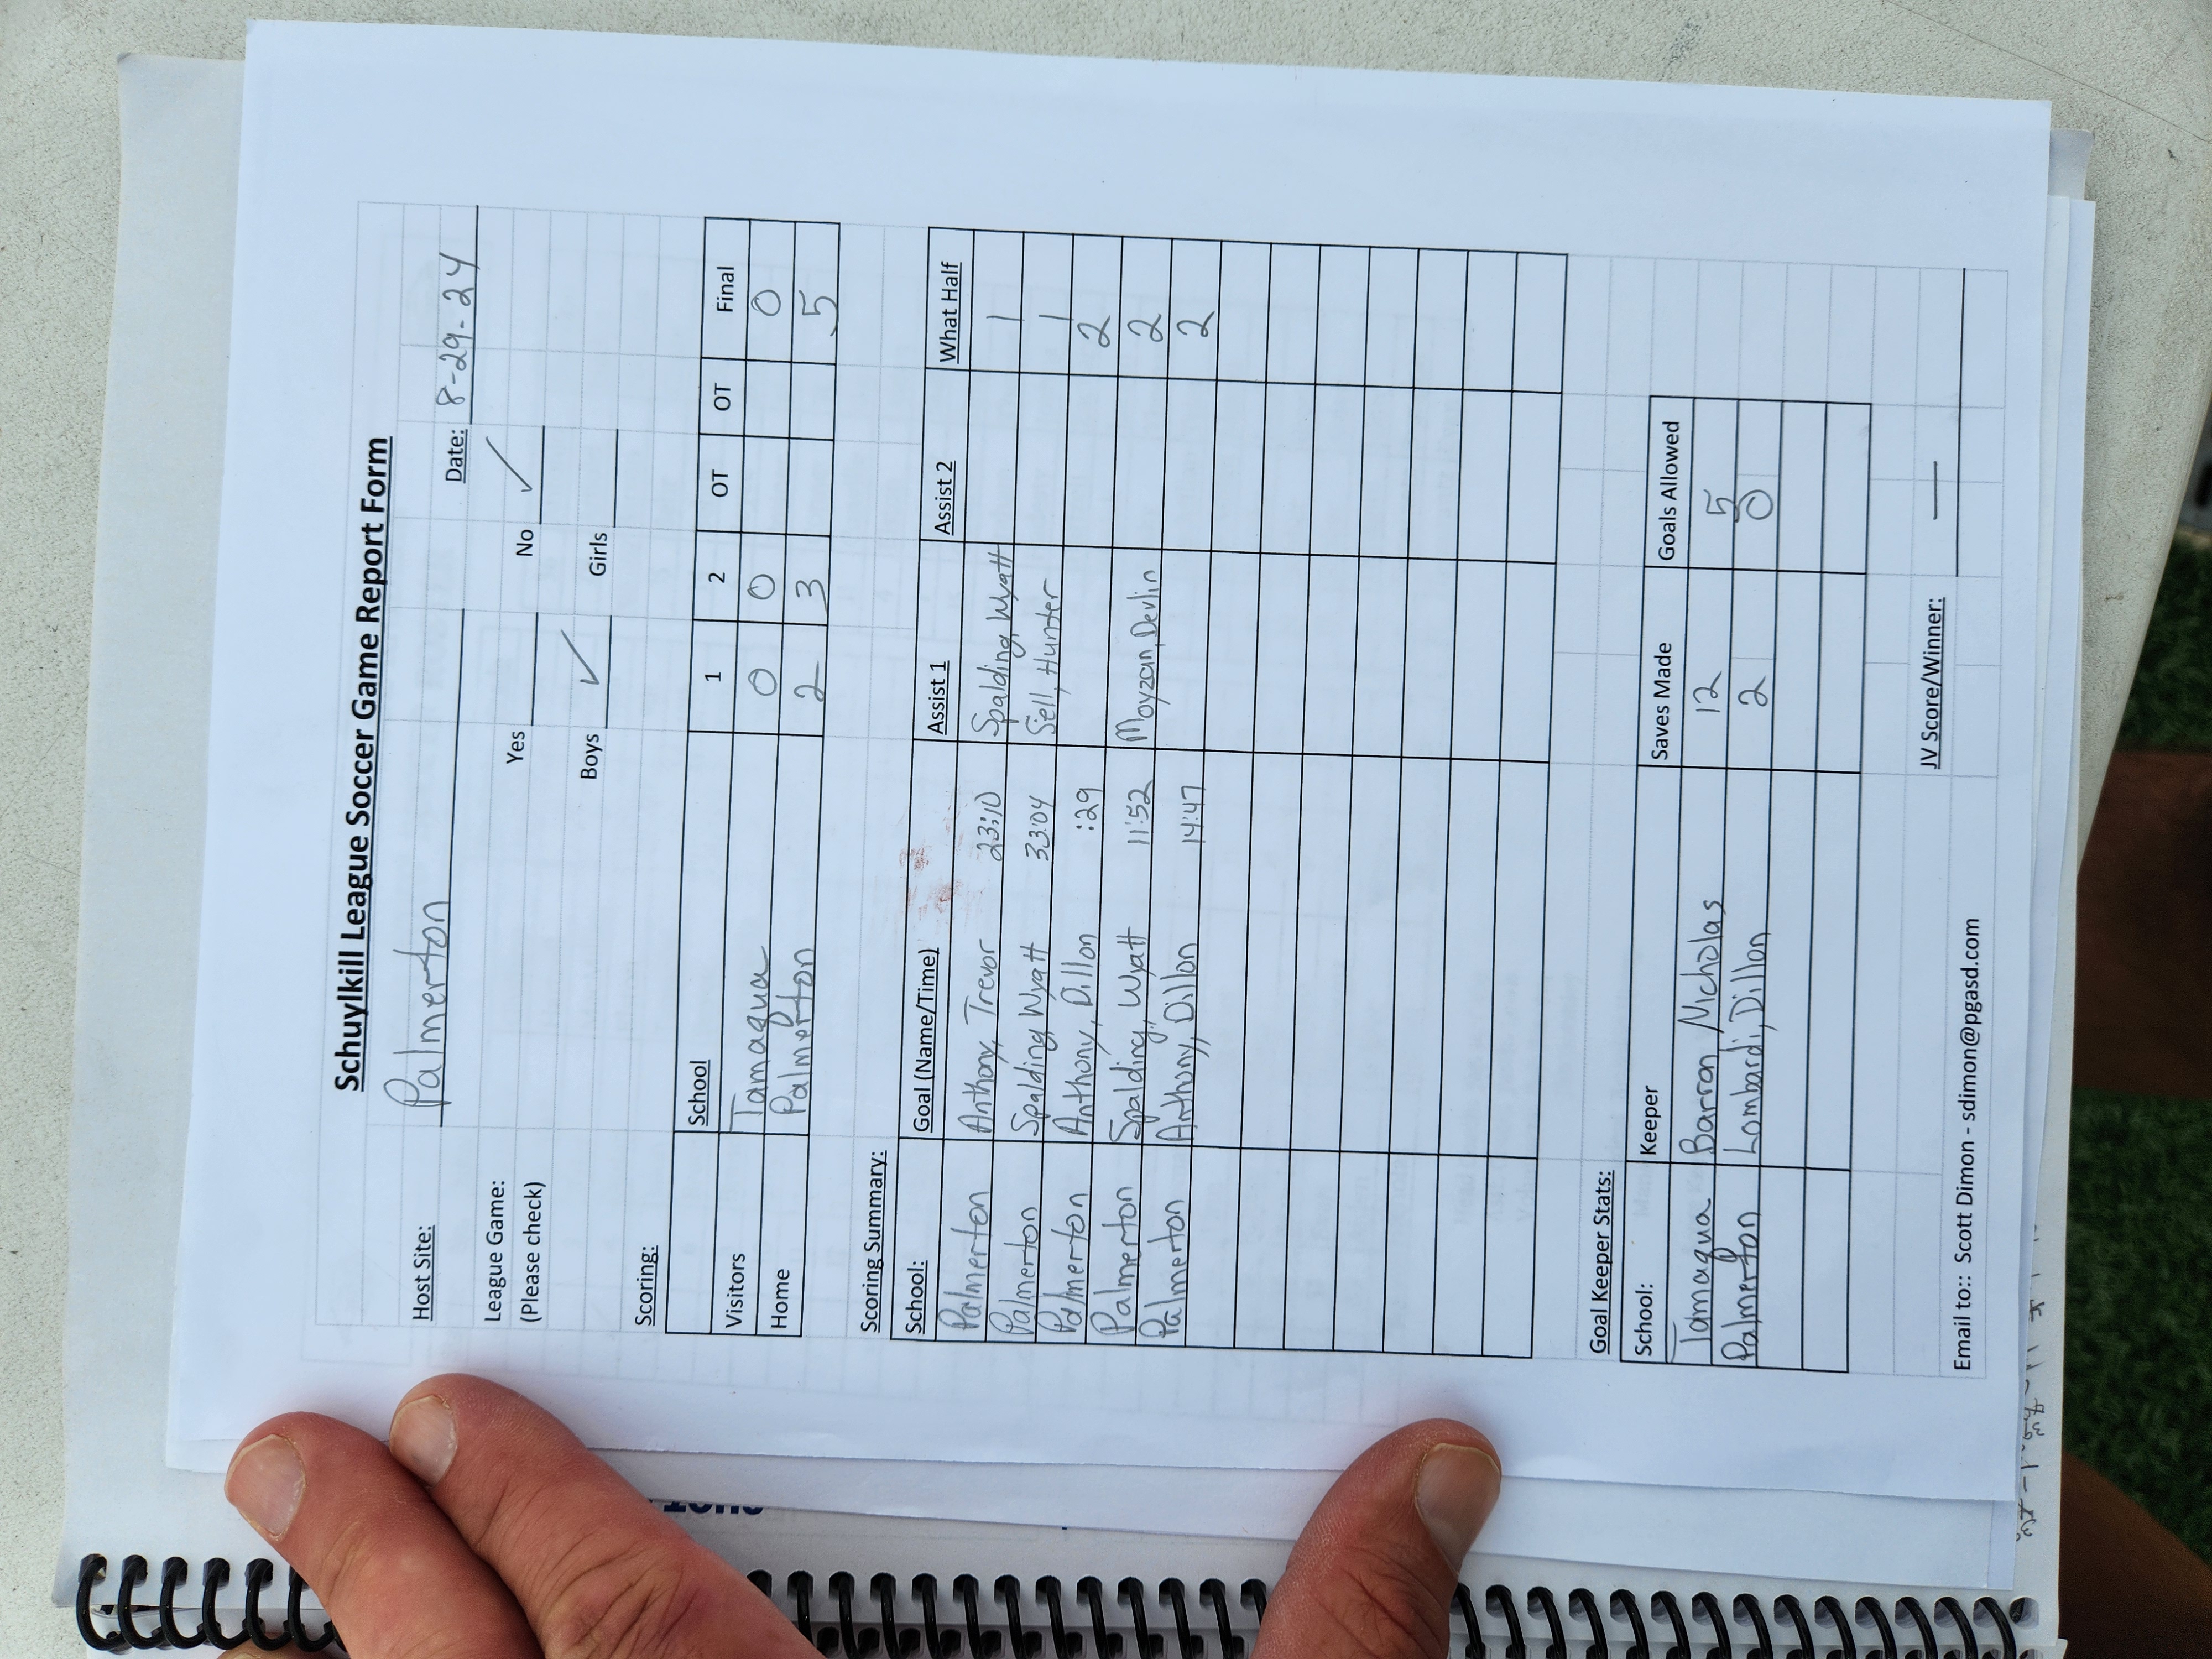 Schuylkill League Soccer Game Report Form
Host Site: Palmerton Date: 8-29-24
League Game: Yes No ✓
(Please check)
Boys ✓ Girls
Scoring:
School 1 2 OT OT Final
Visitors Tamaqua 0 0 0
Home Palmerton 2 3 5
Scoring Summary:
School: Goal (Name/Time) Assist 1 Assist 2 What Half
Palmerton Anthony, Trevor 23:10 Spalding, Wyatt 1
Palmerton Spalding, Wyatt 33:04 Siell, Hunter 1
Palmerton Anthony, Dillon :29 2
Palmerton Spalding, Wyatt 11:52 Moyzan, Devlin 2
Palmerton Anthony, Dillon 14:47 2
Goal Keeper Stats:
School: Keeper Saves Made Goals Allowed
Tamaqua Barron, Nicholas 12 5
Palmerton Lombardi, Dillon 2 0
JV Score/Winner: —
Email to:: Scott Dimon - sdimon@pgasd.com